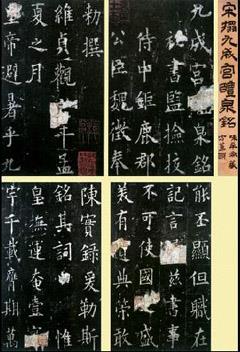 宋搨九成宮醴泉銘
九成宮醴泉銘
書監撿挍
侍中鉅鹿郡
公臣魏徵奉
勅撰
維貞觀年孟
夏之月
皇帝避暑乎九
能丕顯但職在
記言茲書事
不可使國盛
美有典策敢
陳實錄爰勒斯
銘其詞惟
皇撫運奄壹
宇千載膺期萬